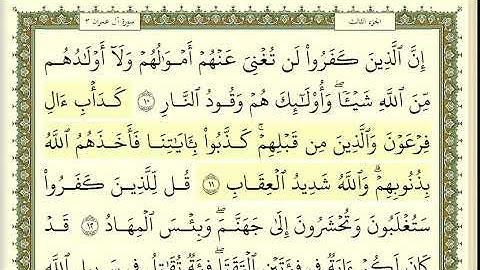 الجزء الثالث سورة آل عمران ٣
إِنَّ ٱلَّذِينَ كَفَرُوا۟ لَن تُغْنِىَ عَنْهُمْ أَمْوَٰلُهُمْ وَلَآ أَوْلَٰدُهُم
مِّنَ ٱللَّهِ شَيْـًٔا ۖ وَأُو۟لَٰٓئِكَ هُمْ وَقُودُ ٱلنَّارِ ١٠ كَدَأْبِ ءَالِ
فِرْعَوْنَ وَٱلَّذِينَ مِن قَبْلِهِمْ ۚ كَذَّبُوا۟ بِـَٔايَٰتِنَا فَأَخَذَهُمُ ٱللَّهُ
بِذُنُوبِهِمْ ۗ وَٱللَّهُ شَدِيدُ ٱلْعِقَابِ ١١ قُل لِّلَّذِينَ كَفَرُوا۟
سَتُغْلَبُونَ وَتُحْشَرُونَ إِلَىٰ جَهَنَّمَ ۚ وَبِئْسَ ٱلْمِهَادُ ١٢ قَدْ
كَانَ لَكُمْ ءَايَةٌ فِى فِئَتَيْنِ ٱلْتَقَتَا ۖ فِئَةٌ تُقَٰتِلُ فِى سَبِيلِ ٱللَّهِ